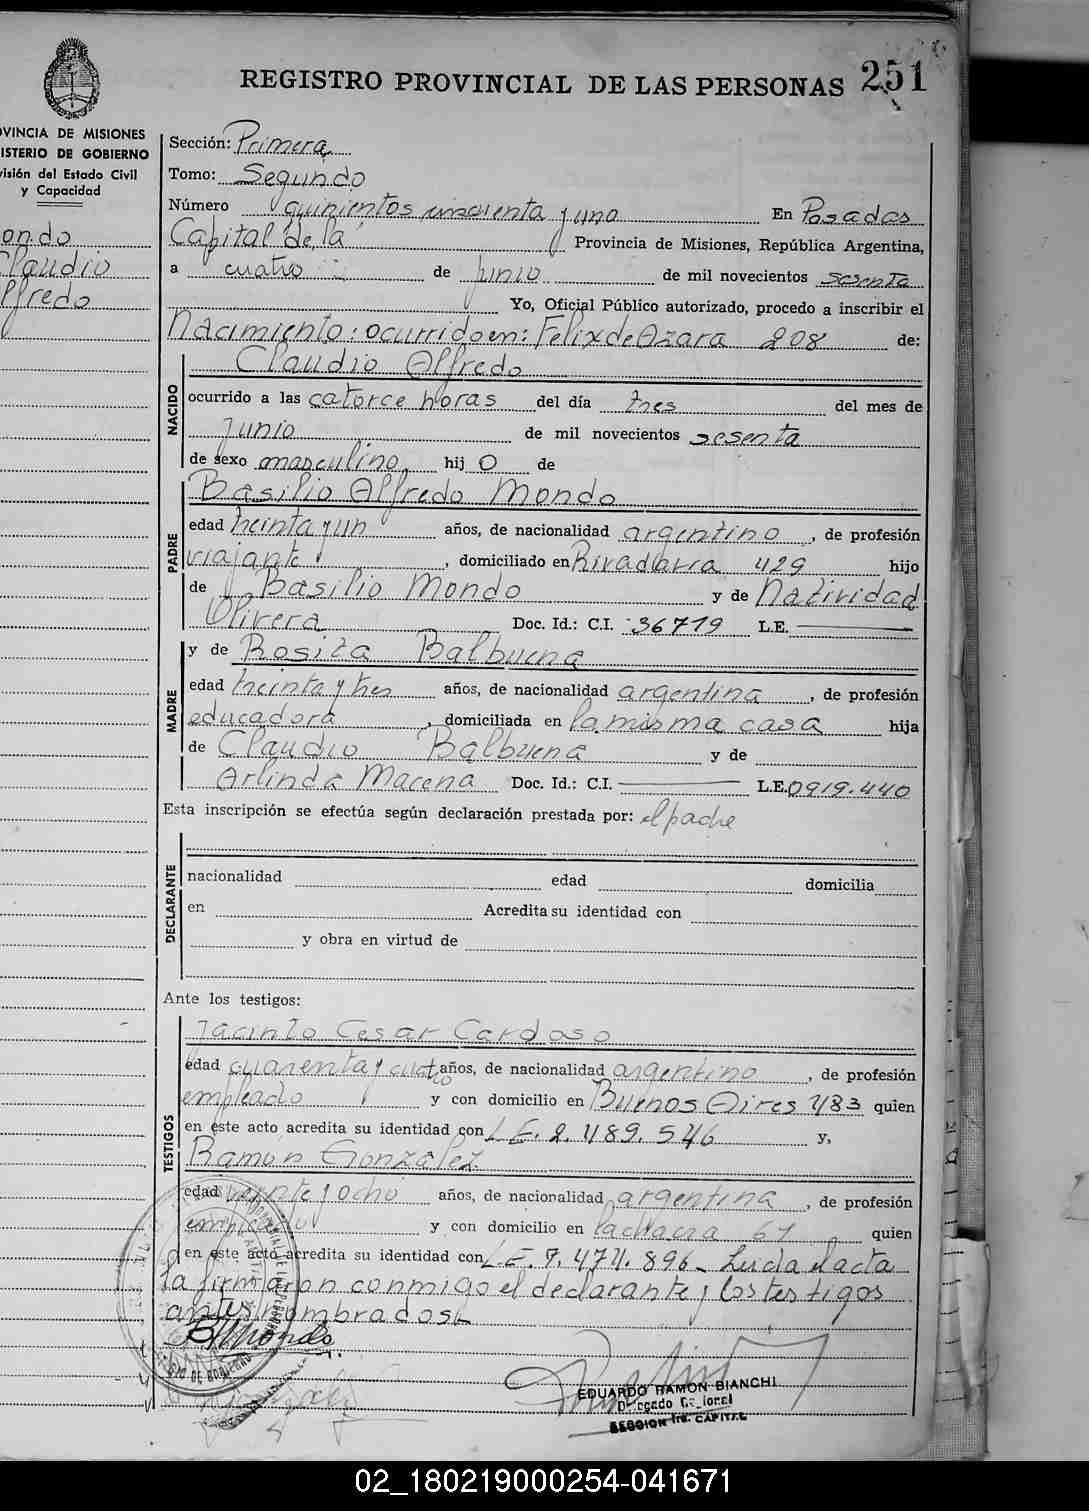 REGISTRO PROVINCIAL DE LAS PERSONAS 251
VINCIA DE MISIONES
ISTERIO DE GOBIERNO
visión del Estado Civil
y Capacidad
ondo
Claudio
lfredo
Sección: Primera
Tomo: Segundo
Número quinientos cincuenta y uno En Posadas
Capital de la Provincia de Misiones, República Argentina,
a cuatro de junio de mil novecientos sesenta
Yo, Oficial Público autorizado, procedo a inscribir el
Nacimiento: ocurrido en: Felix de Azara 208 de:
NACIDO
Claudio Alfredo
ocurrido a las catorce horas del día tres del mes de
junio de mil novecientos sesenta
de sexo masculino hij o de
PADRE
Basilio Alfredo Mondo
edad treinta y un años, de nacionalidad argentino, de profesión
viajante, domiciliado en Rivadavia 429 hijo
de Basilio Mondo y de Natividad
Olivera Doc. Id.: C.I. 36719 L.E.
y de Rosita Balbuena
MADRE
edad treinta y tres años, de nacionalidad argentina, de profesión
educadora, domiciliada en la misma casa hija
de Claudio Balbuena y de
Arlinda Macena Doc. Id.: C.I. L.E. 0919.440
Esta inscripción se efectúa según declaración prestada por: el padre
DECLARANTE
nacionalidad edad domicilia
en Acredita su identidad con
y obra en virtud de
Ante los testigos:
TESTIGOS
Jacinto Cesar Cardoso
edad cuarenta y cuatro años, de nacionalidad argentino, de profesión
empleado y con domicilio en Buenos Aires 483 quien
en este acto acredita su identidad con L.E. 2.489.546 y,
Ramon González
edad veinte y ocho años, de nacionalidad argentina, de profesión
empleado y con domicilio en la chacra 61 quien
en este acto acredita su identidad con L.E. 7.474.896_ Leida el acta
la firmaron conmigo el declarante y los testigos
antes nombrados
BAMondo
EDUARDO RAMON BIANCHI
Delegado Seccional
SECCION 1ra. CAPITAL
02_180219000254-041671